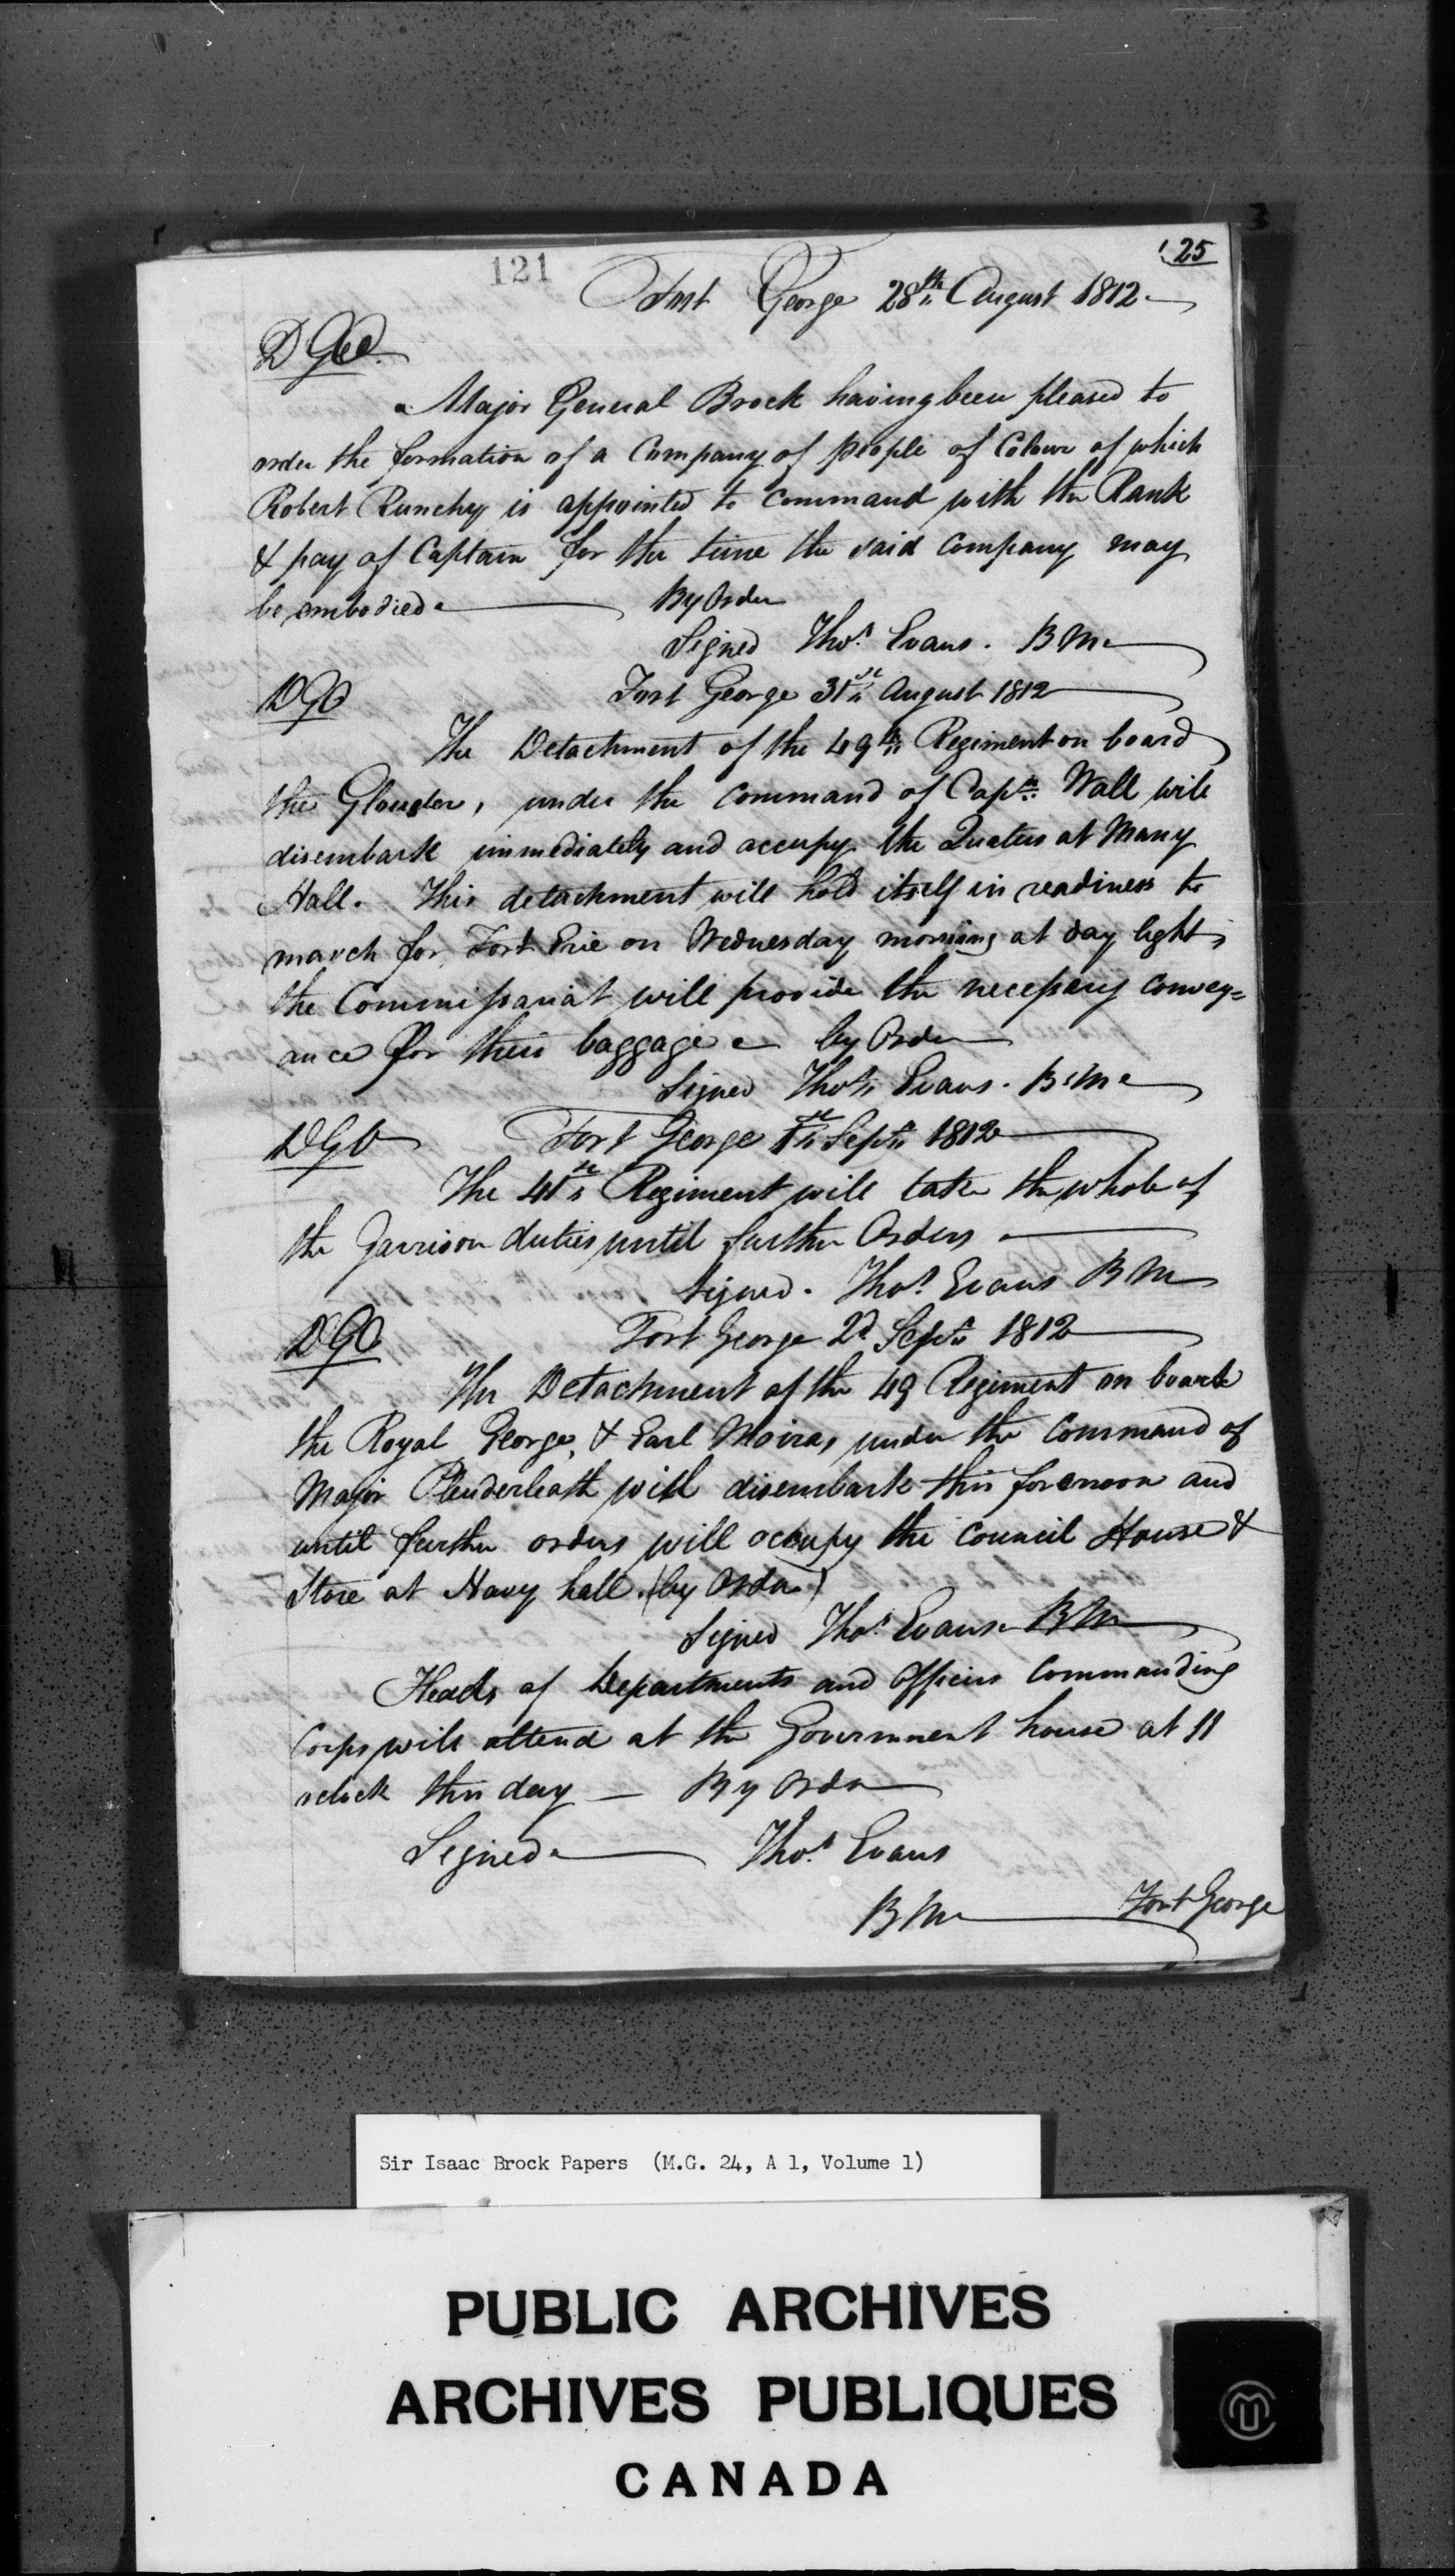 121
25
Fort George 28th August 1812
DGO.
Major General Brock having been pleased to
order the formation of a Company of people of Colour of which
Robert Runchey is appointed to command with the Rank
& pay of Captain for the time the said Company may
be embodied. By Order
Signed Thos. Evans. B M
DGO Fort George 31st August 1812
The Detachment of the 49th Regiment on board
the Glouster, under the Command of Captn. Wall will
disembark immediately and occupy the Quaters at Navy
Hall. This detachment will hold itself in readiness to
march for Fort Erie on Wednesday morning at day light,
the Commissariat will provide the necessary convey=
ance for their baggage by Order
Signed Thos. Evans. B. M
DGO Fort George 1st Sept. 1812
The 41st Regiment will take the whole of
the Garrison duties until further Orders
Signed. Thos. Evans B M
DGO Fort George 2d Sept. 1812
The Detachment of the 49 Regiment on board
the Royal George, & Earl Moira, under the Command of
Major Plenderleath will disembark this forenoon and
until further orders will occupy the Council House &
Store at Navy hall. (by Order)
Signed Thos. Evans B M
Heads of Departments and Officers Commanding
Corps will attend at the Government house at 11
oclock this day — By Order
Signed Thos. Evans
B M Fort George
Sir Isaac Brock Papers (M.G. 24, A 1, Volume 1)
PUBLIC ARCHIVES
ARCHIVES PUBLIQUES
CANADA